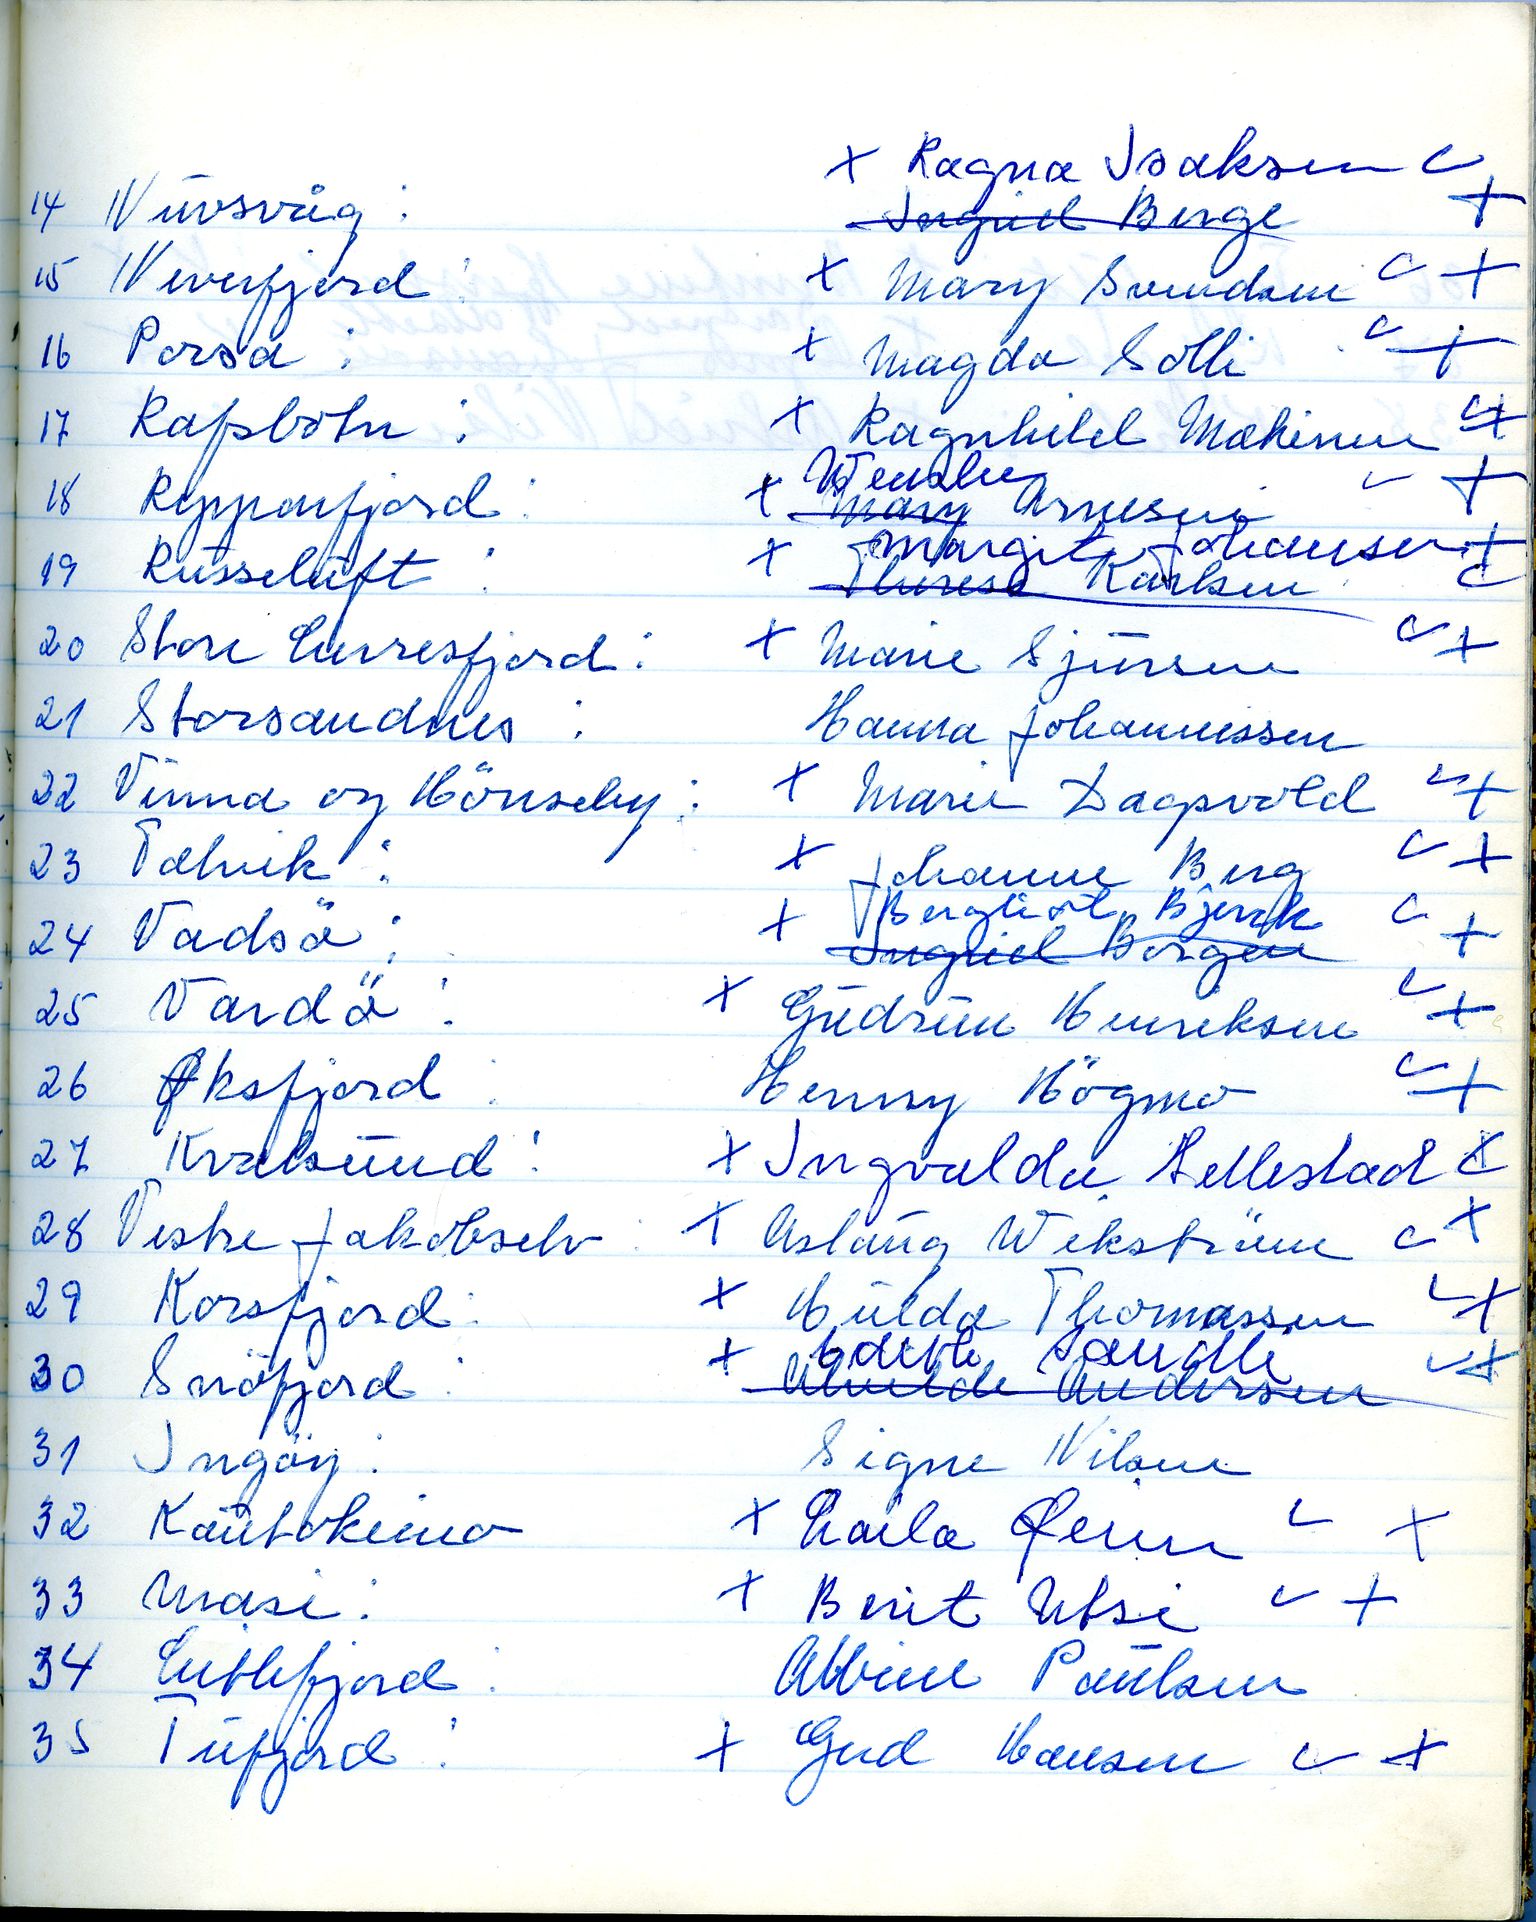 x Ragna Isaksen
14 Nuvsvåg : Ingrid Berge +
15 Neverfjord : x Mary Svendsen +
16 Porsa : x Magda Solli +
17 Rafsbotn : x Ragnhild Mækinen +
Wenche
18 Repparfjord : x Mary Arnesen +
Margit Johansen +
19 Russeluft : x Therese Karlsen
20 Store Lerresfjord : x Marie Sjursen +
21 Storsandnes : Hanna Johannessen
22 Vinna og Hönseby : x Marie Dagsvold +
23 Talvik : x Johanne Berg +
Bergliot Bjerk
24 Vadsö : x Ingrid Borgen +
25 Vardö : x Gudrun Henriksen +
26 Øksfjord : Henny Högmo +
27 Kvalsund : x Ingvalda Hellestad x
28 Vestre Jakobselv : x Aslaug Wekström x
29 Korsfjord : x Hulda Thomassen x
Edith Sandli
30 Snöfjord : x Alvilde Andersen x
31 Ingöy : Signe Nilsen
32 Kautokeino x Laila Øien x
33 Masi : x Berit Utsi +
34 Lillefjord : Albine Paulsen
35 Tufjord : x Gud Hansen x